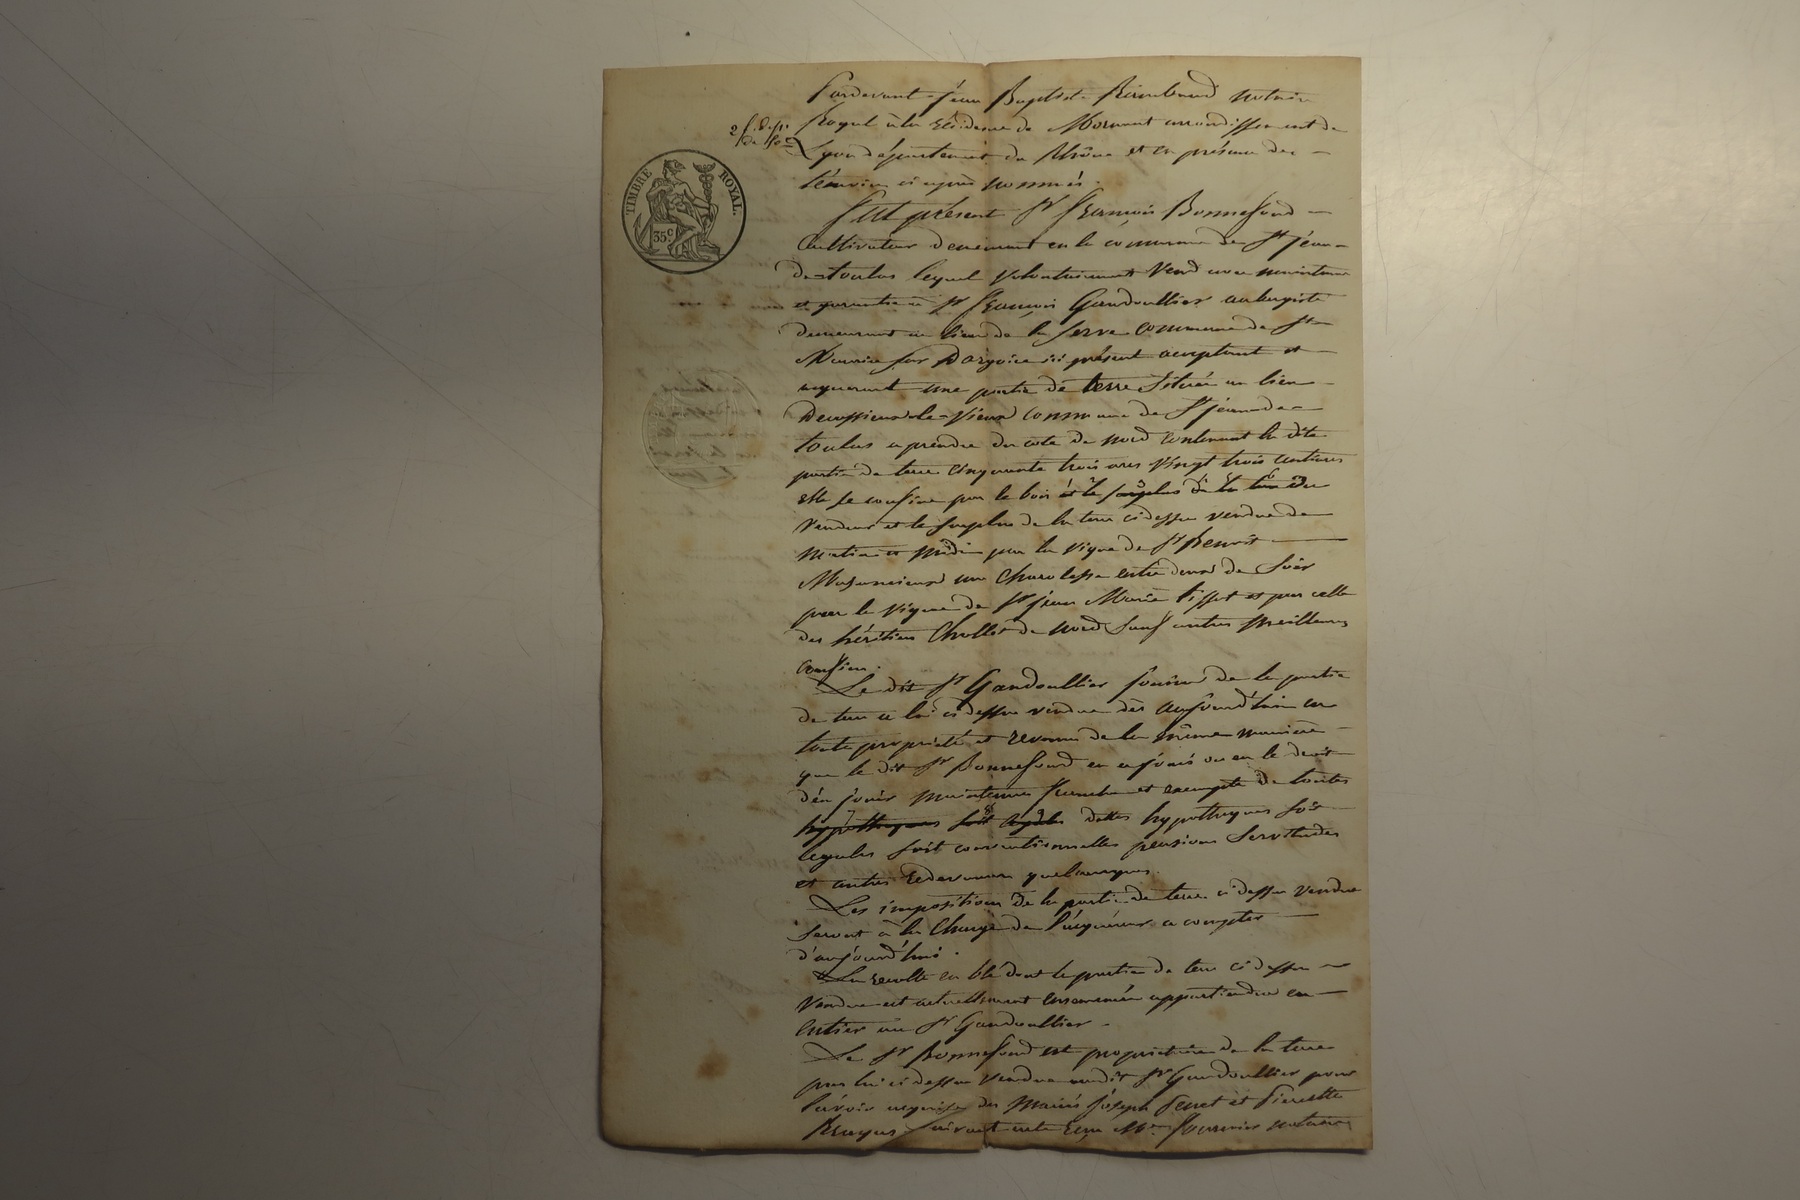 Pardevant Jean Baptiste Raimbaud notaire
Royal à la résidence de Mornant arrondissement de
Lyon département du Rhône et en présence des
témoins ci après nommés.
TIMBRE ROYAL.
35 c
Fut présent Sr François Bonnefond
Cultivateur demeurant en la commune de St jean
de toulas lequel volontairement vend avec maintenue
et garantie à Sr François Gandoullier aubergiste
demeurant au lieu de la Serve commune de St
Maurice sur Dargoire ici présent acceptant et
acquerant une partie de terre située au lieu
le Vieux commune de St jean de
toulas a prendre du coté de nord contenant la dite
partie de terre cinquante trois ares vingt trois centiares
elle se confine par le bois et le surplus de la terre du
vendeur et le surplus de la terre ci dessus vendue de
matin et midi par la vigne de Sr Benoit
un entre deux de soir
par la vigne de Sr jean Marie tisset et par celle
des héritiers Chollet de nord sauf autres meilleurs
confins.
Le dit Sr Gandoullier jouira de la partie
de terre a lui ci dessus vendue dès aujourd'hui en
toute propriété et revenu de la même manière
que le dit Sr Bonnefond en a joui ou eu le droit
d'en jouir maintenue franche et exempte de toutes
hypothèques soit légales dettes hypothèques soit
legales soit conventionnelles pensions servitudes
et autres redevances quelconques.
Les impositions de la partie de terre ci dessus vendue
seront à la charge de l'acquéreur a compter
d'aujourd'hui.
La recolte en blé dont la partie de terre ci dessus
vendue est actuellement ensemencée appartiendra en
entier au Sr Gandoullier.
Le Sr Bonnefond est propriétaire de la terre
par lui ci dessus vendue audit Sr Gandoullier pour
l'avoir acquise des mariés Joseph et Pierrette
Bruyas suivant acte reçu Me Fournier notaire